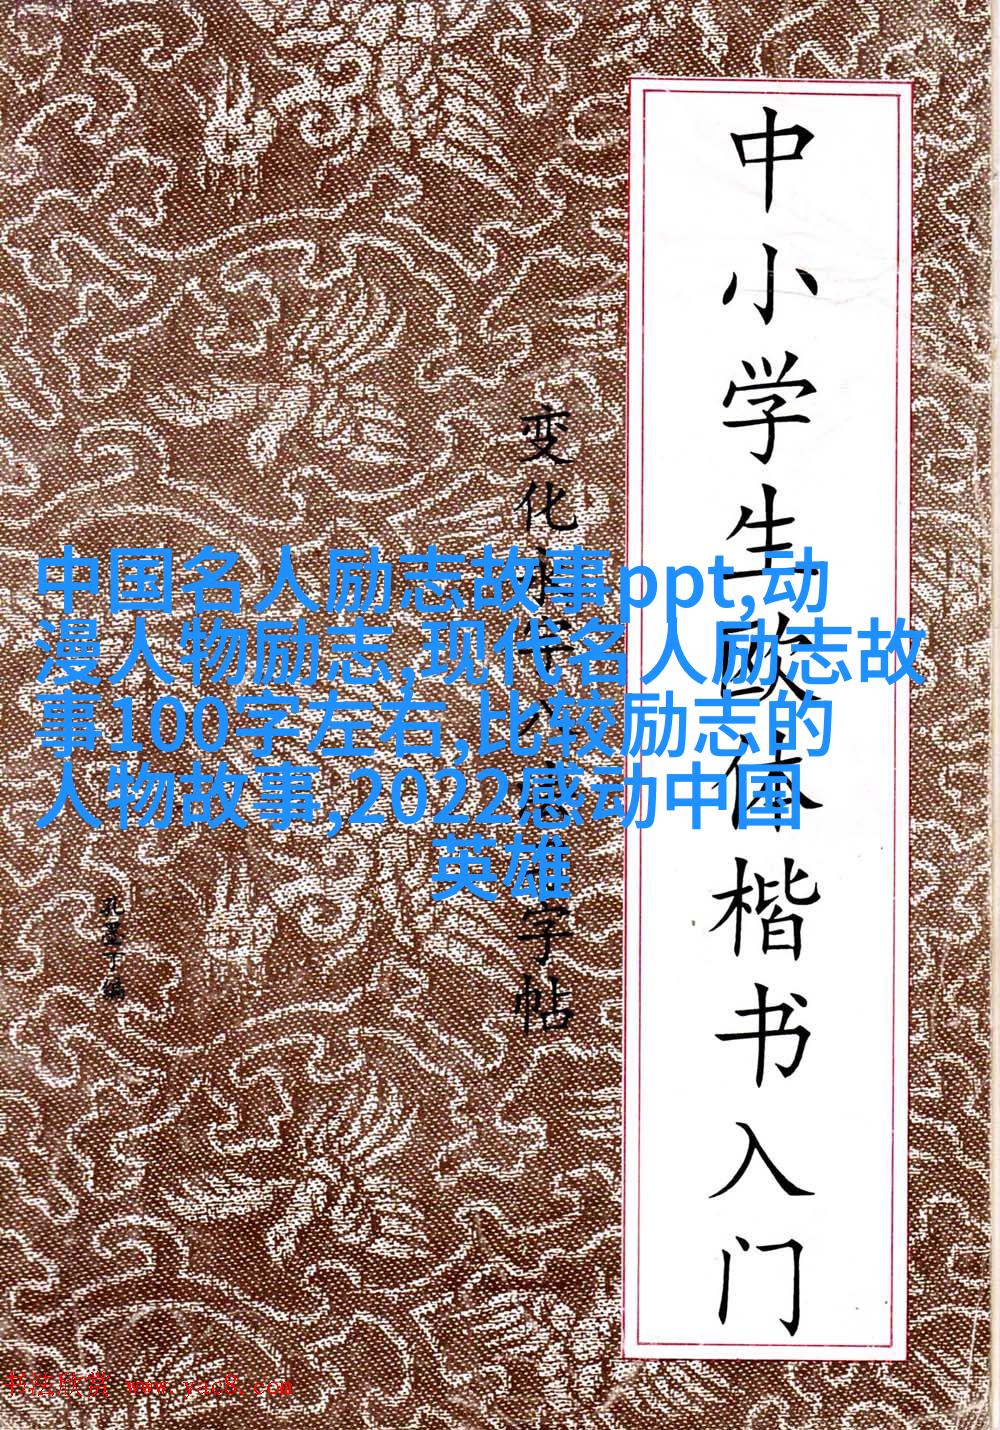 中小学生欧体楷书入门
变化
字帖
中国名人励志故事ppt,动
漫人物励志,现代名人励志故
事100字左右,比较励志的
人物故事,2022感动中国
英雄
孔墨丁编
书法欣赏 www.yac8.com